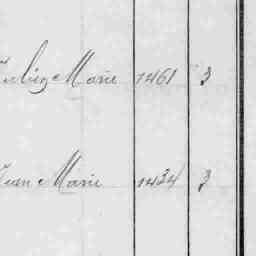 Marie 1461 3
Jean Marie 1434 3